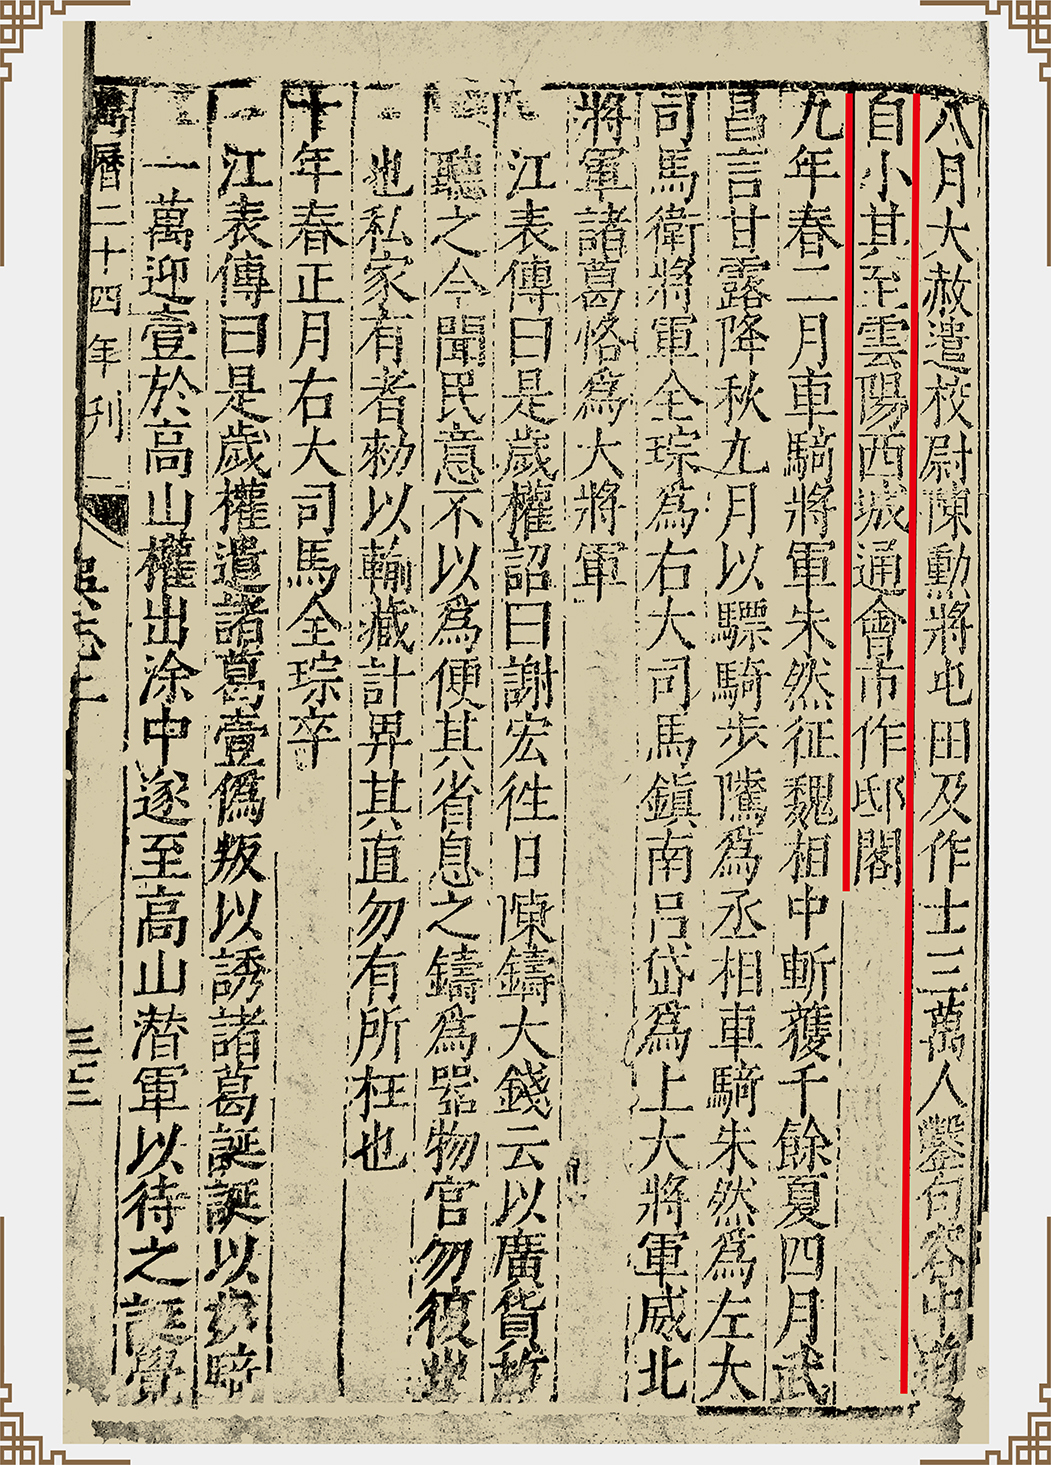 八月大赦遣校尉陳勳將屯田及作士三萬人鑿句容中道
自小其至雲陽西城通會市作邸閣
九年春二月車騎將軍朱然征魏相中斬獲千餘夏四月武
昌言甘露降秋九月以驃騎步騭爲丞相車騎朱然爲左大
司馬衛將軍全琮爲右大司馬鎮南呂岱爲上大將軍威北
將軍諸葛恪爲大將軍
江表傳曰是歲權詔曰謝宏徃日陳鑄大錢云以廣貨故
聽之今聞民意不以爲便其省息之鑄爲器物官勿復出
也私家有者勑以輸藏計畀其直勿有所枉也
十年春正月右大司馬全琮卒
江表傳曰是歲權遣諸葛壹僞叛以誘諸葛誕誕以步騎
一萬迎壹於高山權出涂中遂至高山潛軍以待之誕覺
萬曆二十四年刊
吳志二
三三